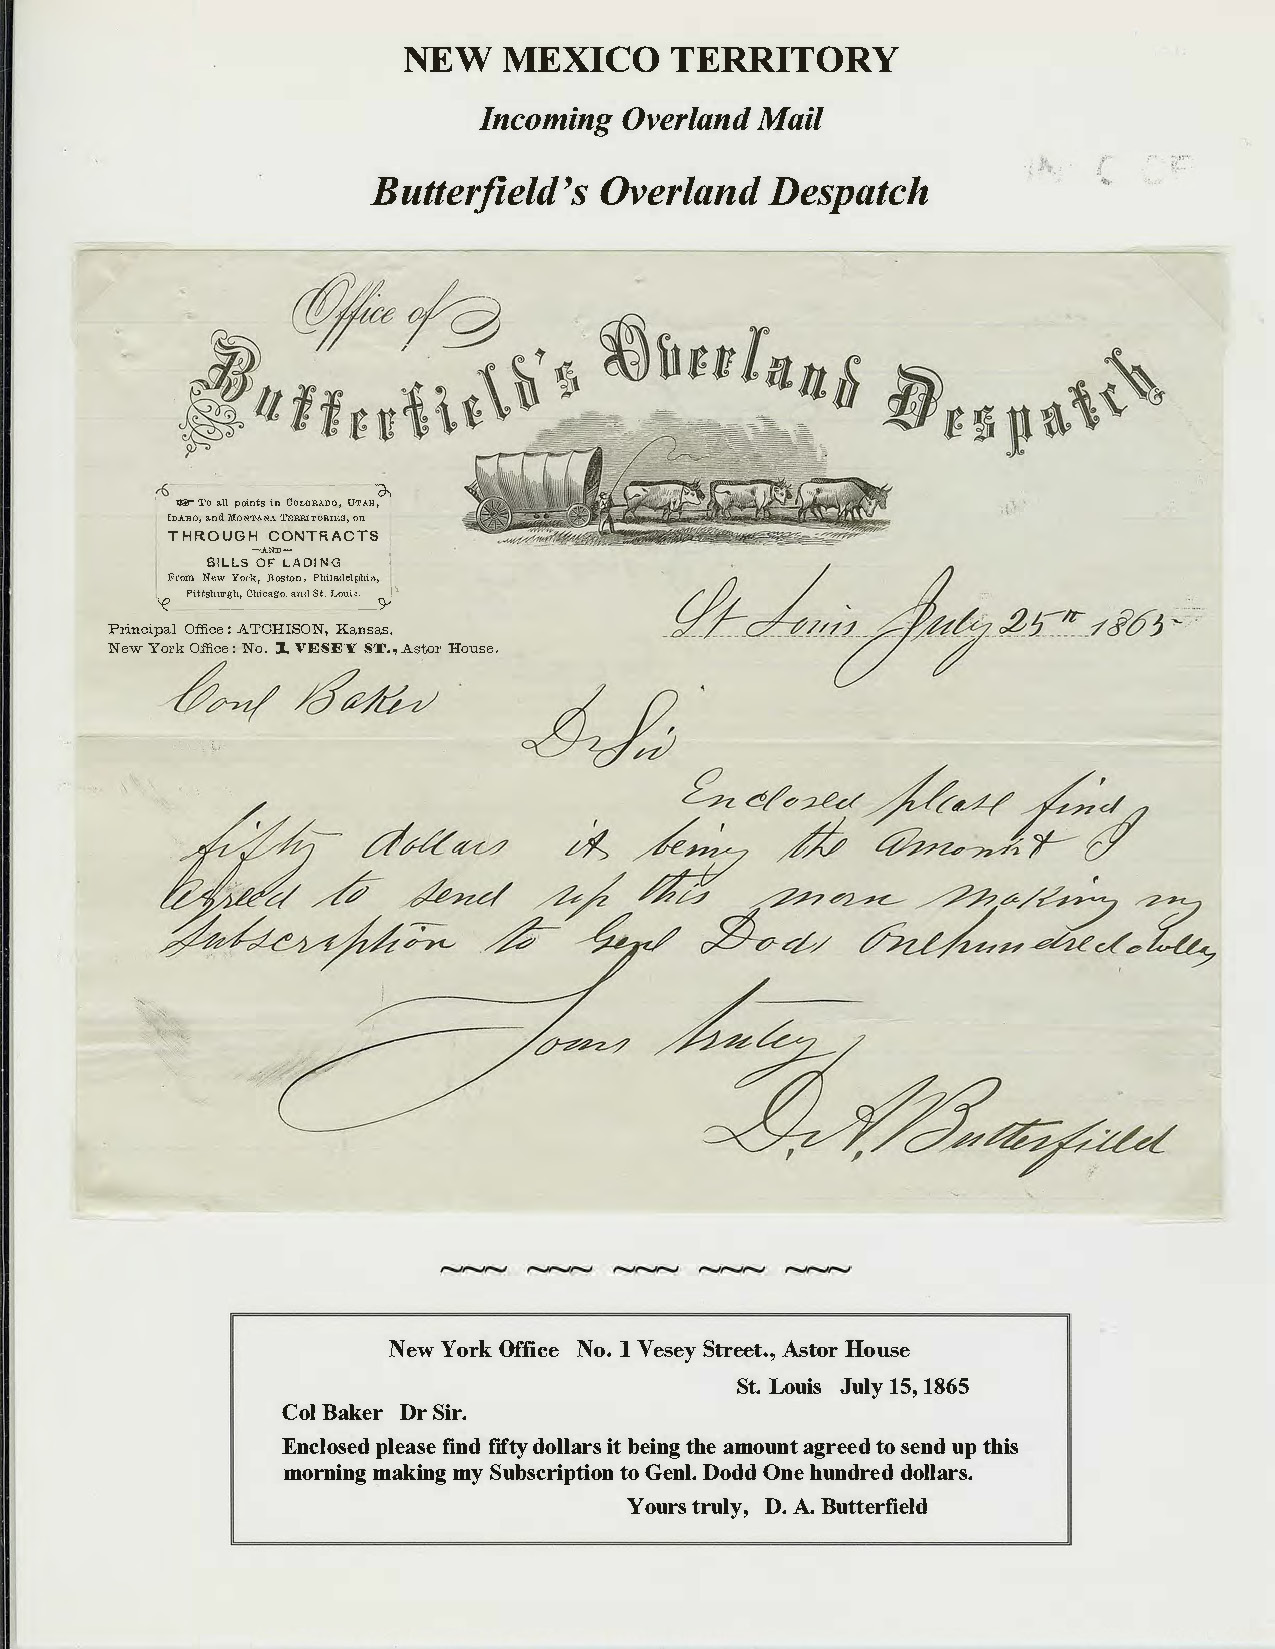 NEW MEXICO TERRITORY
Incoming Overland Mail
Butterfield's Overland Despatch
Office of
Butterfield's Overland Despatch
To all points in COLORADO, UTAH,
IDAHO, and MONTANA TERRITORIES, on
THROUGH CONTRACTS
—AND—
BILLS OF LADING
From New York, Boston, Philadelphia,
Pittsburgh, Chicago, and St. Louis.
Principal Office: ATCHISON, Kansas.
New York Office: No. 1 VESEY ST., Astor House.
St Louis July 25th 1865
Conl Baker
Dr Sir
Enclosed please find
fifty dollars it being the amount I
agreed to send up this morn making my
subscription to Genl Dods One hundred dollars
Yours truley
D. A. Butterfield
New York Office No. 1 Vesey Street., Astor House
St. Louis July 15, 1865
Col Baker Dr Sir.
Enclosed please find fifty dollars it being the amount agreed to send up this
morning making my Subscription to Genl. Dodd One hundred dollars.
Yours truly, D. A. Butterfield